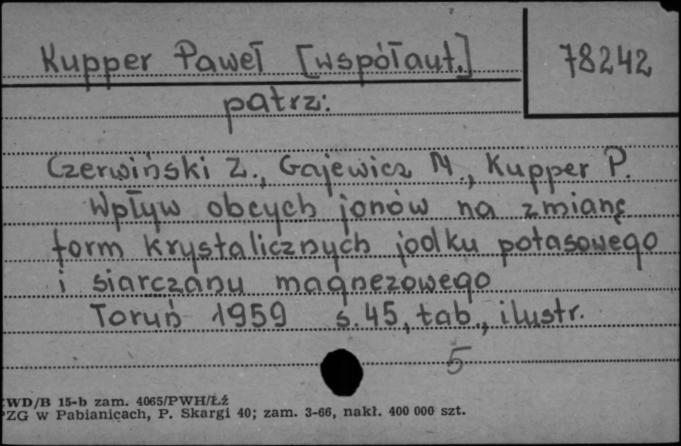 Kupper Paweł [współaut.] 78242
patrz:
Czerwiński Z., Gajewicz M., Kupper P.
Wpływ obcych jonów na zmianę
form krystalicznych jodku potasowego
i siarczanu magnezowego
Toruń 1959 s. 45, tab., ilustr.
5
WD/B 15-b zam. 4065/PWH/Łź
PZG w Pabianicach, P. Skargi 40; zam. 3-66, nakł. 400 000 szt.